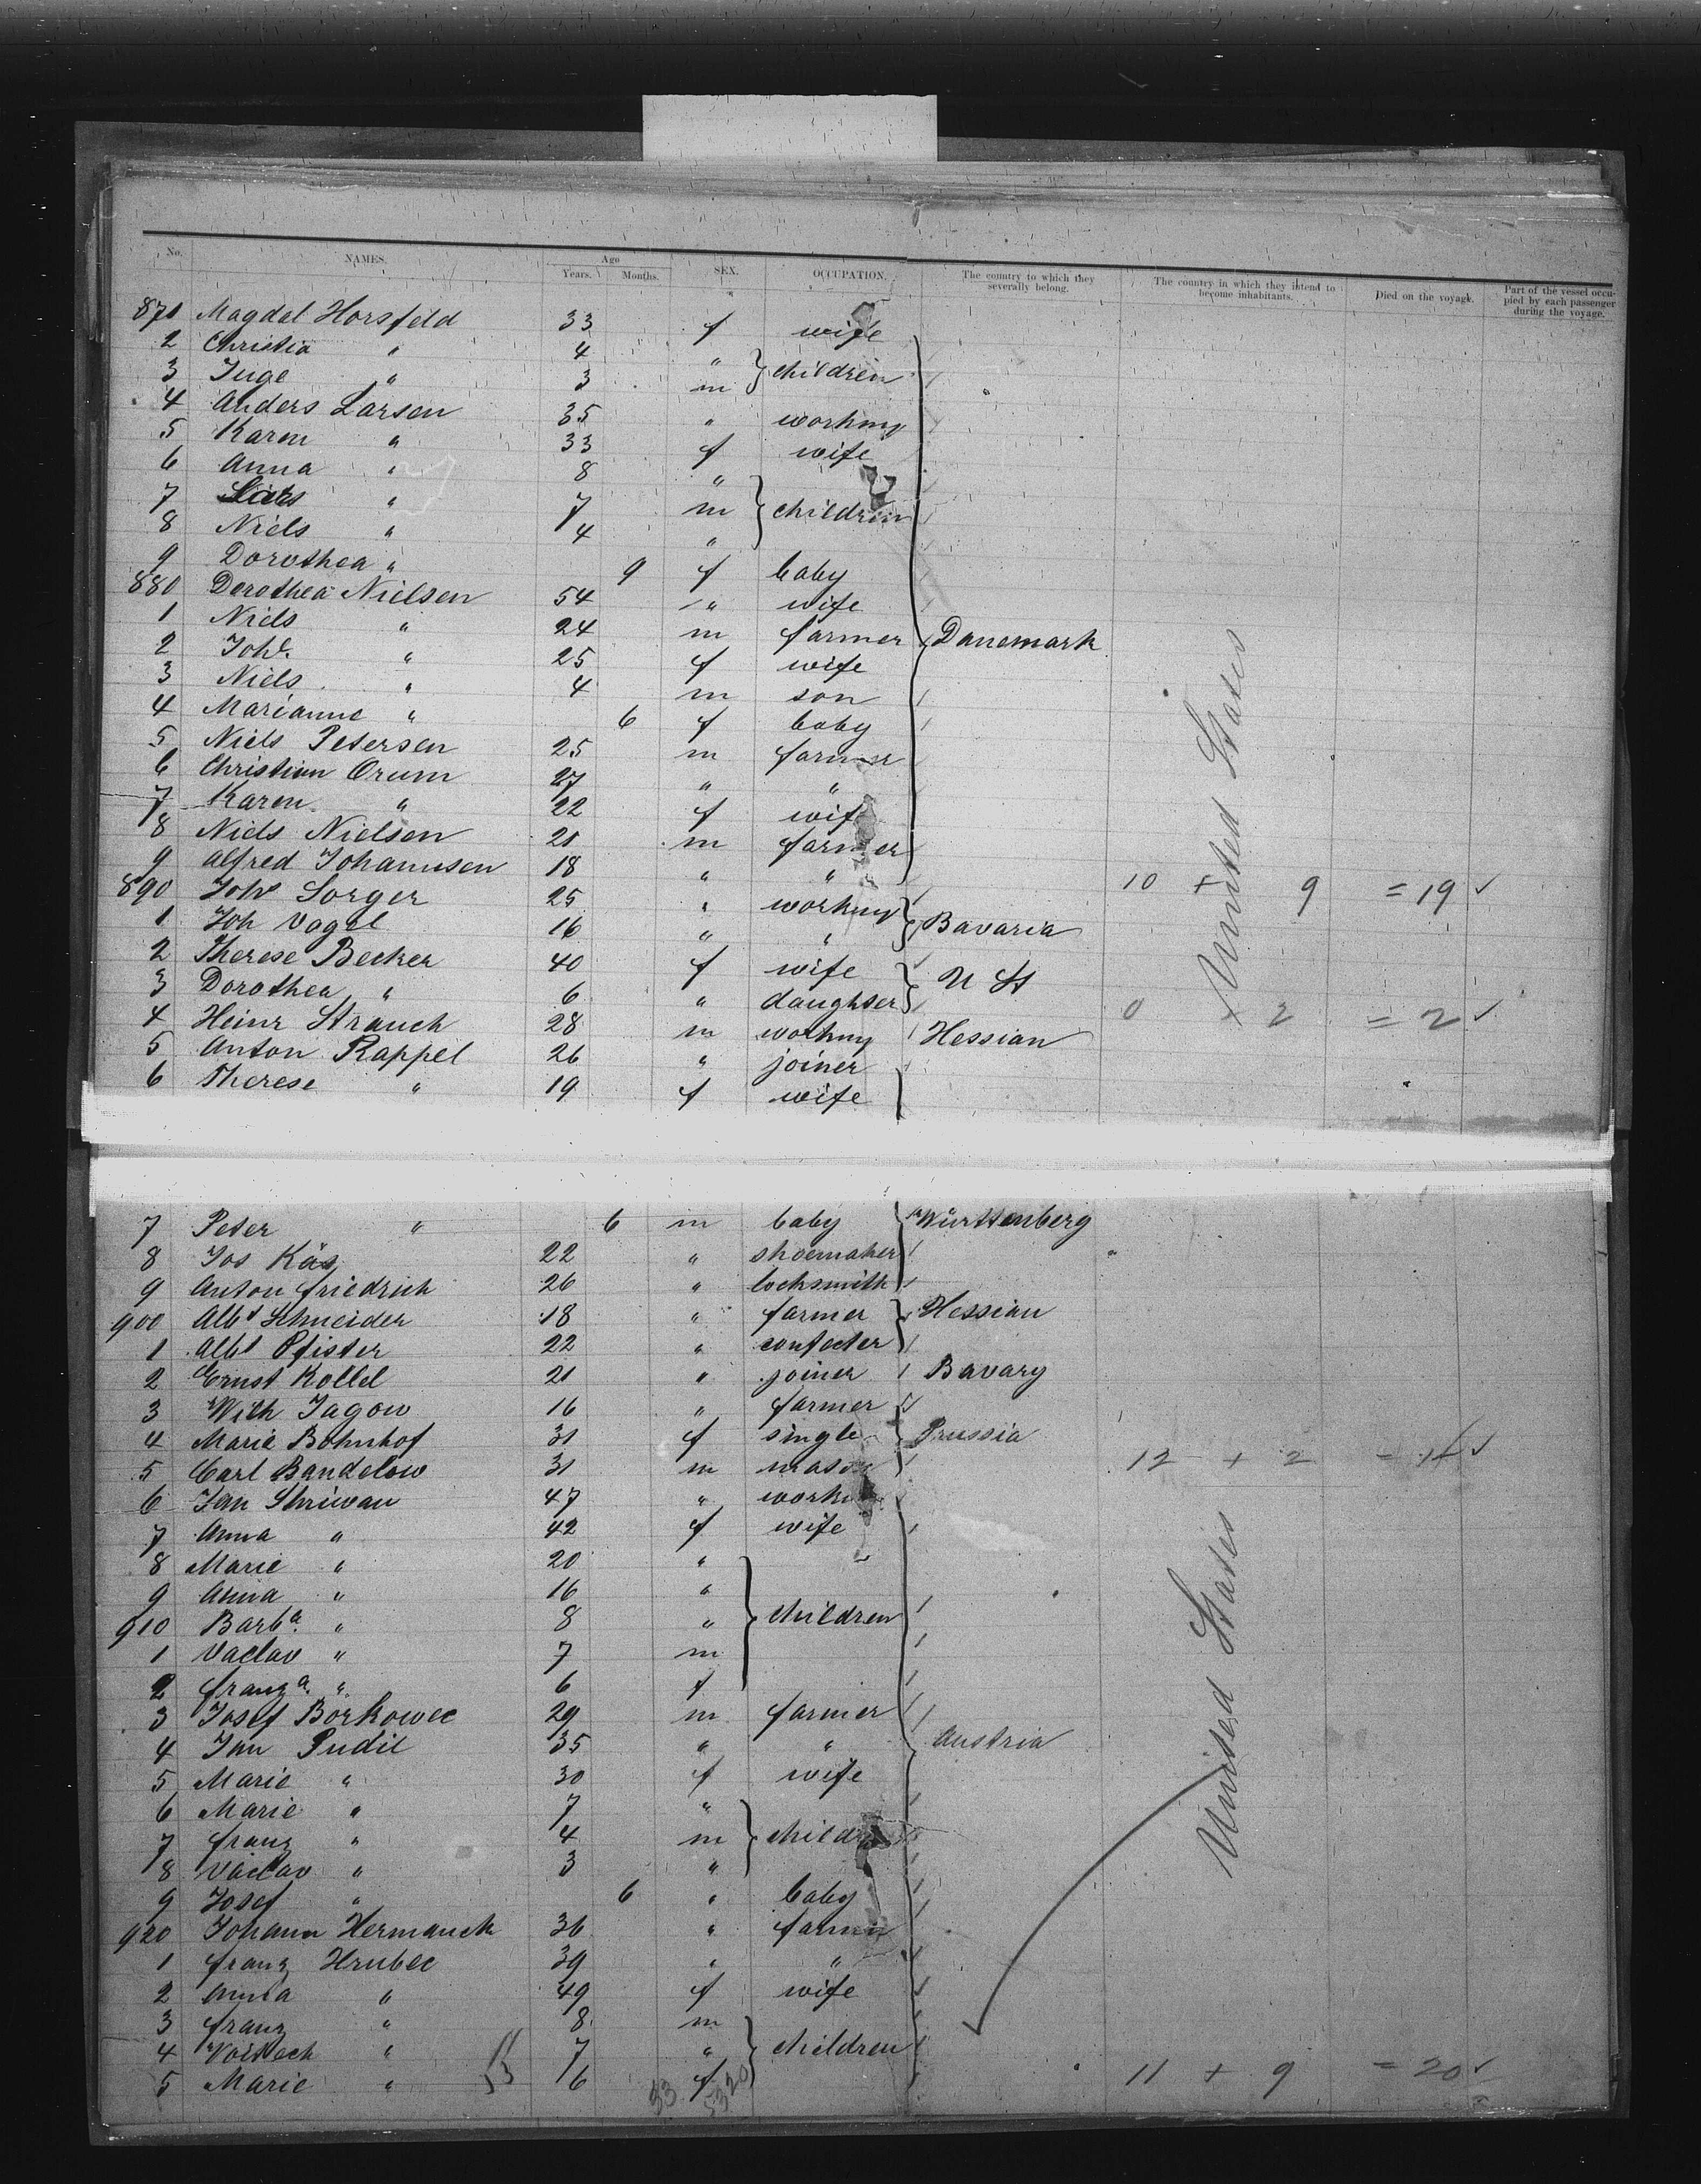 No. NAMES. Age Years. Months. SEX. OCCUPATION. The country to which they severally belong. The country in which they intend to become inhabitants. Died on the voyage. Part of the vessel occupied by each passenger during the voyage.
871 Magdal Horsfeld 33 f wife
2 Christia " 4 " } children
3 Inge " 3 m
4 Anders Larsen 35 " working
5 Karen " 33 f wife
6 Anna " 8 "
7 Lars " 7 m } children
8 Niels " 4 "
9 Dorothea " 9 f baby
880 Dorothea Nielsen 54 " wife
1 Niels " 24 m farmer Danemark
2 Joh. " 25 f wife
3 Niels " 4 m son
4 Marianne " 6 f baby
5 Niels Petersen 25 m farmer
6 Christian Orum 27 " "
7 Karen " 22 f wife
8 Niels Nielsen 21 m farmer
9 Alfred Johannsen 18 " " United States
890 Joh. Sorger 25 " working 10 + 9 = 19
1 Joh Vogel 16 " " } Bavaria
2 Therese Becker 40 f wife } U St
3 Dorothea " 6 " daughter
4 Heinr Strauch 28 m working Hessian 0 + 2 = 2
5 Anton Rappel 26 " joiner
6 Therese " 19 f wife
7 Peter " 6 m baby Württenberg
8 Jos Käs 22 " shoemaker
9 Anton Friedrich 26 " locksmith
900 Albt Schneider 18 " farmer } Hessian
1 Albt Pfister 22 " confecter
2 Ernst Kollel 21 " joiner Bavary
3 Wilh Jagow 16 " farmer
4 Marie Bohnhof 31 f single } Prussia
5 Carl Bandelow 31 m mason 12 + 2 = 14
6 Jan Shriwan 47 " working
7 Anna " 42 f wife
8 Marie " 20 "
9 Anna " 16 "
910 Barba. " 8 " } children
1 Vaclav " 7 m
2 Franza. " 6 f
3 Josef Borkowec 29 m farmer
4 Jan Pudil 35 " " Austria
5 Marie " 30 f wife United States
6 Marie " 7 "
7 Franz " 4 m } children
8 Vaclav " 3 "
9 Josef " 6 " baby
920 Johann Hermanek 36 " farmer
1 Franz Hrubec 39 " "
2 Anna " 49 f wife
3 Franz " 8 m
4 Voitech " 7 " } children
5 Marie " 6 f 11 + 9 = 20
33 5320